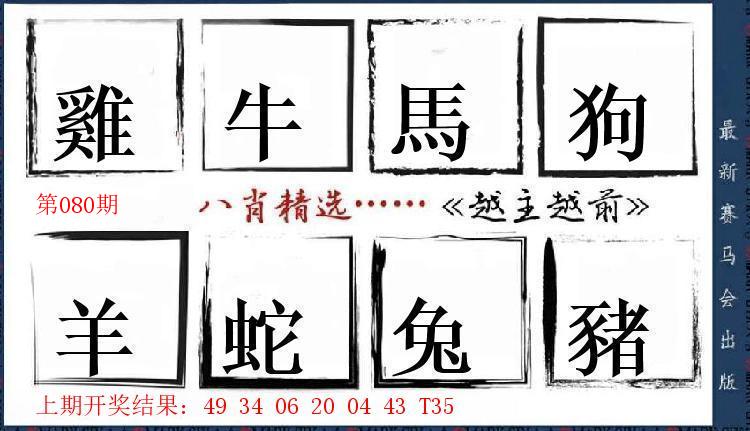 雞 牛 馬 狗
第080期 八肖精选……《越主越前》
羊 蛇 兔 豬
上期开奖结果：49 34 06 20 04 43 T35
最新赛马会出版